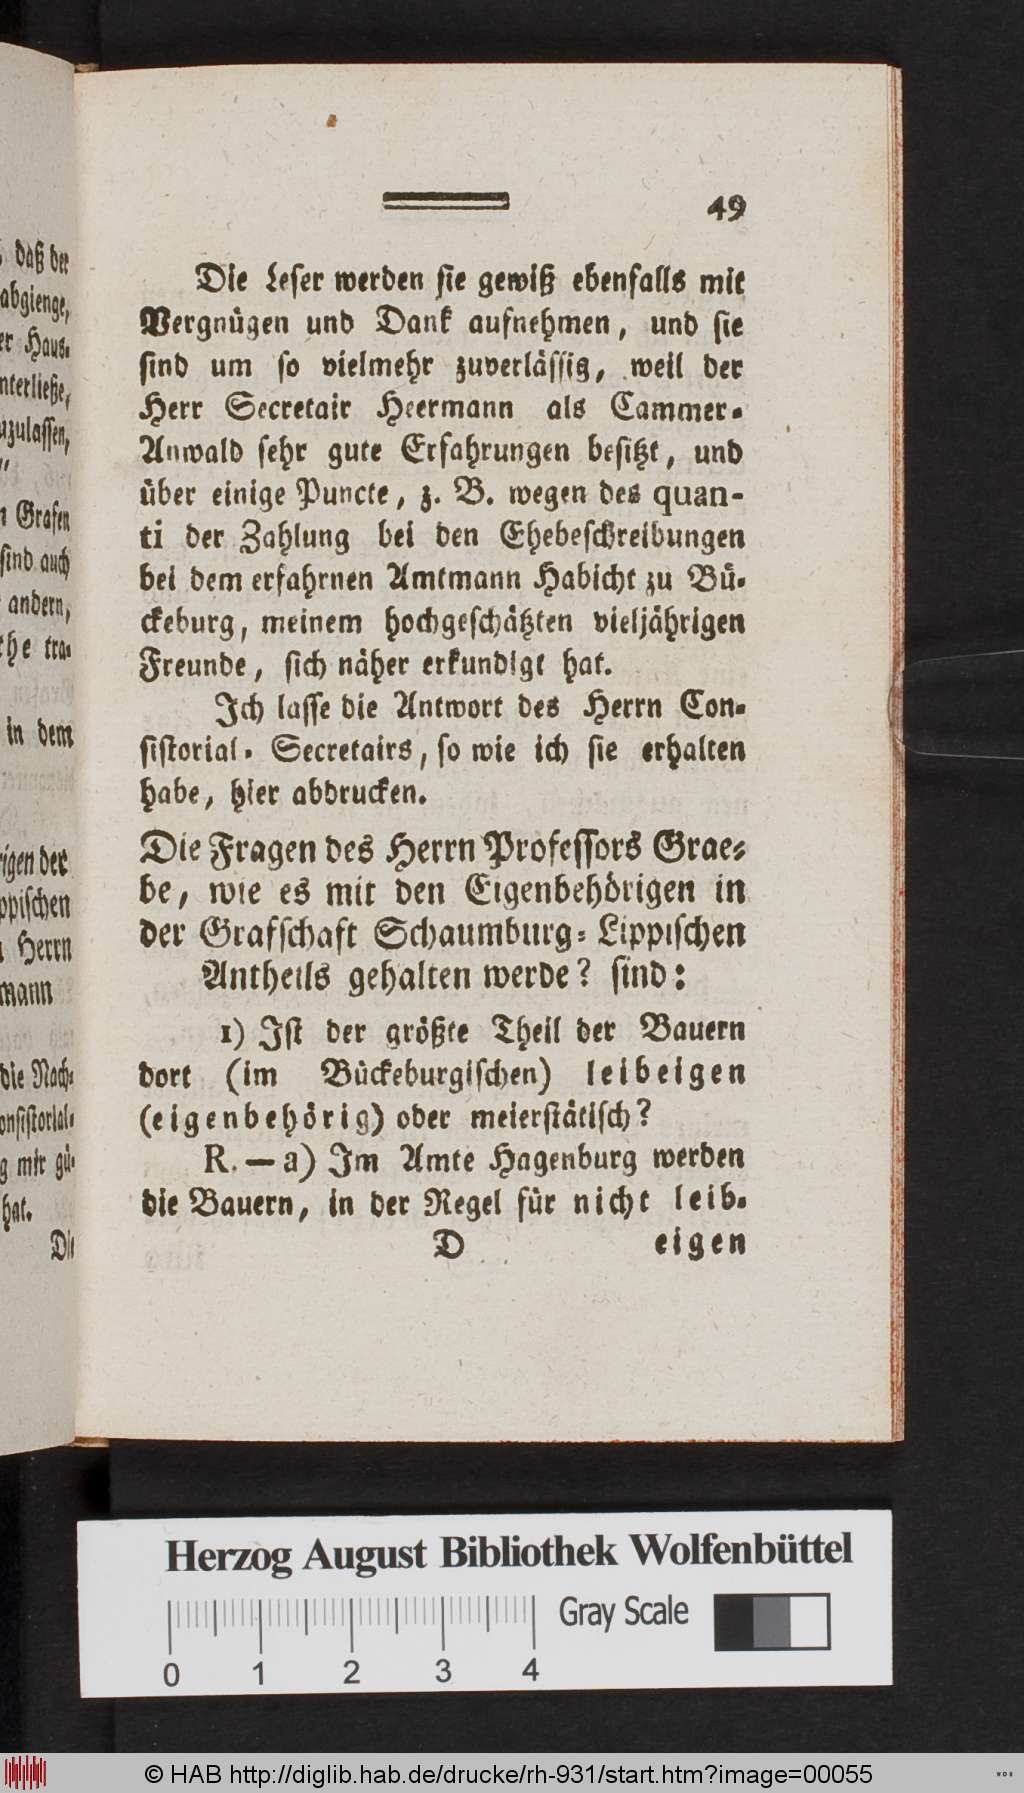 daß der
abgienge,
er Haus-
nterließe,
uzulassen,
"
n Grafen
sind auch
andern,
the tra-
in dem
rigen der
ppischen
Herrn
mann
die Nach-
onsistorial-
g mir gü-
hat.
Die
49
Die Leser werden sie gewiß ebenfalls mit
Vergnügen und Dank aufnehmen, und sie
sind um so vielmehr zuverlässig, weil der
Herr Secretair Heermann als Cammer-
Anwald sehr gute Erfahrungen besitzt, und
über einige Puncte, z. B. wegen des quan-
ti der Zahlung bei den Ehebeschreibungen
bei dem erfahrnen Amtmann Habicht zu Bü-
ckeburg, meinem hochgeschätzten vieljährigen
Freunde, sich näher erkundigt hat.
Ich lasse die Antwort des Herrn Con-
sistorial-Secretairs, so wie ich sie erhalten
habe, hier abdrucken.
Die Fragen des Herrn Professors Grae-
be, wie es mit den Eigenbehörigen in
der Grafschaft Schaumburg-Lippischen
Antheils gehalten werde? sind:
1) Ist der größte Theil der Bauern
dort (im Bückeburgischen) leibeigen
(eigenbehörig) oder meierstätisch?
R. — a) Im Amte Hagenburg werden
die Bauern, in der Regel für nicht leib-
D eigen
Herzog August Bibliothek Wolfenbüttel
Gray Scale
0 1 2 3 4
© HAB http://diglib.hab.de/drucke/rh-931/start.htm?image=00055